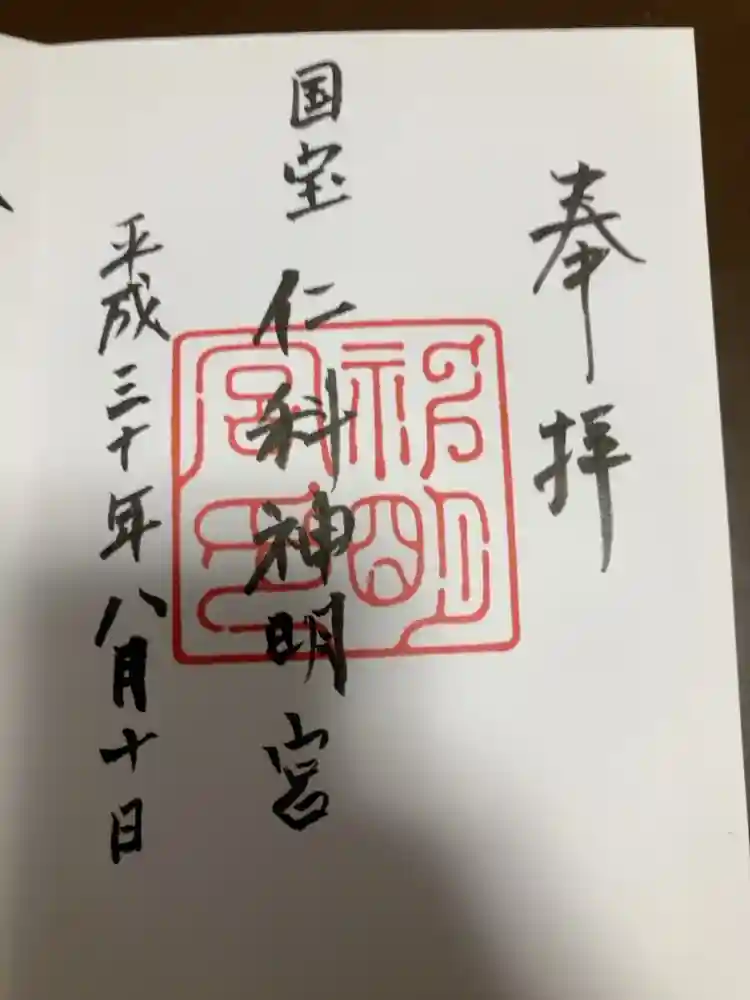 奉拝
国宝 仁科神明宮
平成三十年八月十日